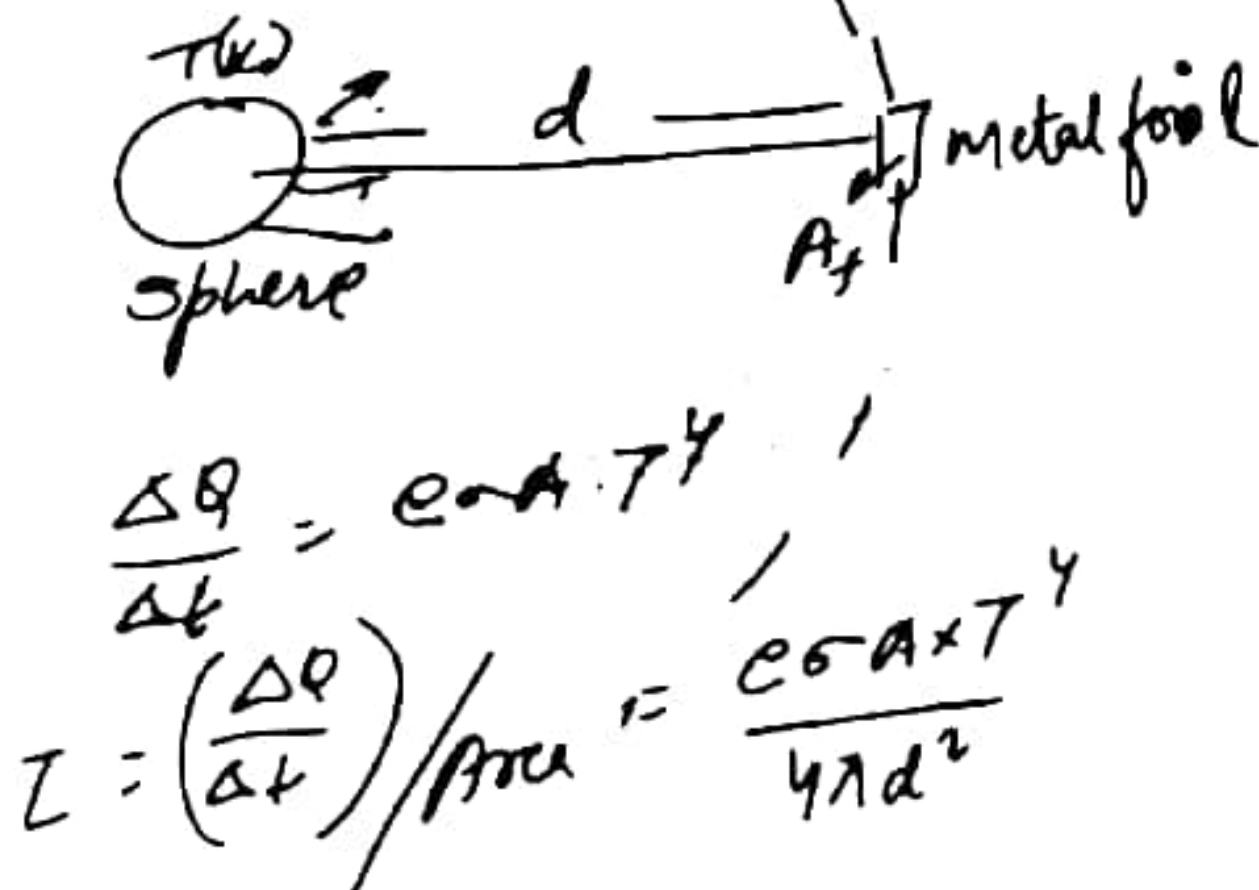 T(K)
d
metal foil
A_f
Sphere
ΔQ/Δt = eσA·T⁴
I = (ΔQ/Δt)/Area = eσA×T⁴/4πd²